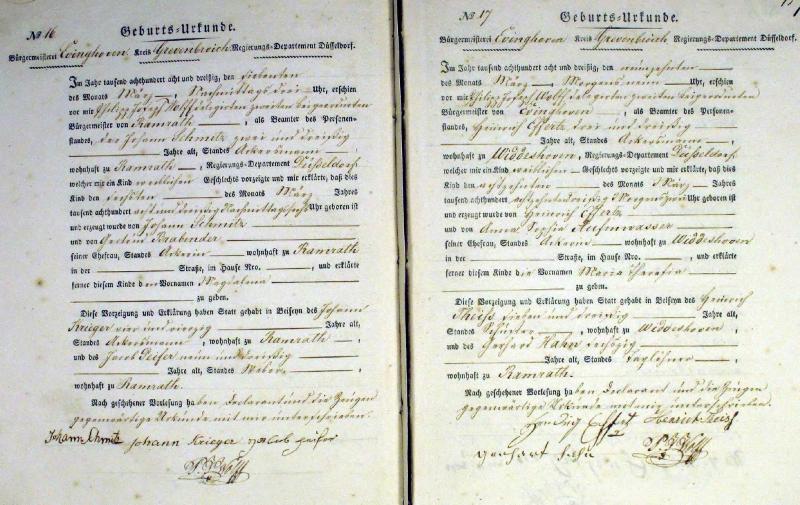 No 16
Geburts-Urkunde.
Bürgermeisterei Evinghoven Kreis Grevenbroich Regierungs-Departement Düsseldorf.
Im Jahr tausend achthundert acht und dreißig, den siebenten
des Monats März, Nachmittags drei Uhr, erschien
vor mir Philipp Joseph Wolff delegirten zweiten Beigeordneten
Bürgermeister von Ramrath, als Beamter des Personen-
standes, der Johann Schmitz zwei und dreißig
Jahre alt, Standes Ackersmann
wohnhaft zu Ramrath, Regierungs-Departement Düsseldorf,
welcher mir ein Kind weiblichen Geschlechts vorzeigte und mir erklärte, daß dies
Kind den sechsten des Monats März Jahres
tausend achthundert acht und dreißig Nachmittags sechs Uhr geboren ist
und erzeugt wurde von Johann Schmitz
und von Gertrud Brahender
seiner Ehefrau, Standes Ackerin wohnhaft zu Ramrath
in der Straße, im Hause Nro. , und erklärte
ferner diesem Kinde den Vornamen Magdalena
zu geben.
Diese Vorzeigung und Erklärung haben Statt gehabt in Beiseyn des Johann
Krieger vier und vierzig Jahre alt,
Standes Ackersmann, wohnhaft zu Ramrath,
und des Jacob Peifer neun und dreißig
Jahre alt, Standes Weber
wohnhaft zu Ramrath.
Nach geschehener Vorlesung haben Declarant und die Zeugen
gegenwärtige Urkunde mit mir unterschrieben.
Johann Schmitz Johann Krieger Jacob peifer
P. J. Wolff
No 17
Geburts-Urkunde.
Bürgermeisterei Evinghoven Kreis Grevenbroich, Regierungs-Departement Düsseldorf.
Im Jahr tausend achthundert acht und dreißig, den neunzehnten
des Monats März, Morgens neun Uhr, erschien
vor mir Philipp Joseph Wolff delegirten zweiten Beigeordneten
Bürgermeister von Evinghoven, als Beamter des Personen-
standes, Heinrich Effertz drei und dreißig
Jahre alt, Standes Ackersmann,
wohnhaft zu Widdeshoven, Regierungs-Departement Düsseldorf,
welcher mir ein Kind weiblichen Geschlechts vorzeigte und mir erklärte, daß dies
Kind den achtzehnten des Monats März Jahres
tausend achthundert acht und dreißig Morgens Uhr geboren ist
und erzeugt wurde von Heinrich Effertz
und von Anna Sophia
seiner Ehefrau, Standes Ackerin wohnhaft zu Widdeshoven
in der Straße, im Hause Nro. , und erklärte
ferner diesem Kinde die Vornamen Maria Theresia
zu geben.
Diese Vorzeigung und Erklärung haben Statt gehabt in Beiseyn des Heinrich
sieben und dreißig Jahre alt,
Standes, wohnhaft zu Widdeshoven,
und des Gerhard Hahn sechszig
Jahre alt, Standes Taglöhner
wohnhaft zu Ramrath.
Nach geschehener Vorlesung haben Declarant und die Zeugen
gegenwärtige Urkunde mit mir unterschrieben.
Effertz Heinrich
gerhart
P. J. Wolff